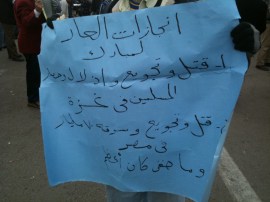 انجازات العار
لمبارك
١- قتل وتجويع واذلال
المسلمين فى غزة
٢- قتل وتجويع وسرقة
فى مصر
وما خفى كان أعظم